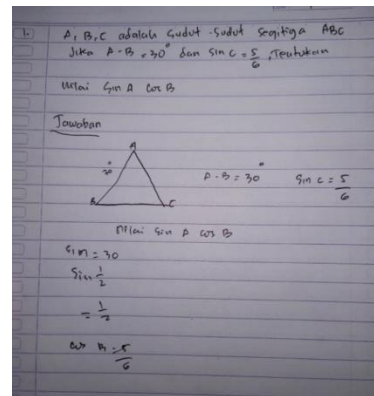 1. A, B, C adalah sudut-sudut segitiga ABC
Jika A - B = 30° dan sin C = 5/6, Tentukan
nilai Sin A Cos B
Jawaban
A
30°
B C
A - B = 30° Sin C = 5/6
Nilai Sin A cos B
Sin = 30
Sin 1/2
= 1/2
cos B = 5/6